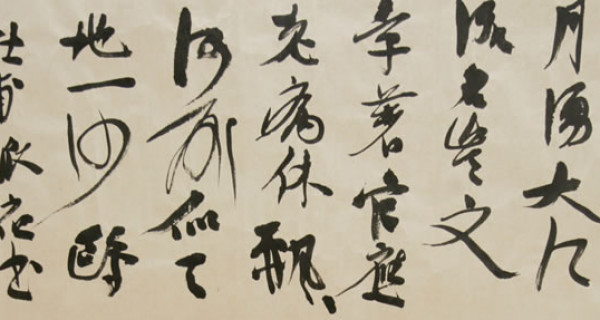 月湧大江
流名豈文
章著官應
老病休飄〻
何所似天
地一沙鷗
杜甫